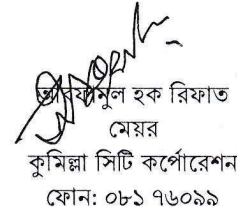 আরফানুল হক রিফাত
মেয়র
কুমিল্লা সিটি কর্পোরেশন
ফোন: ০৮১ ৭৬০৯৯